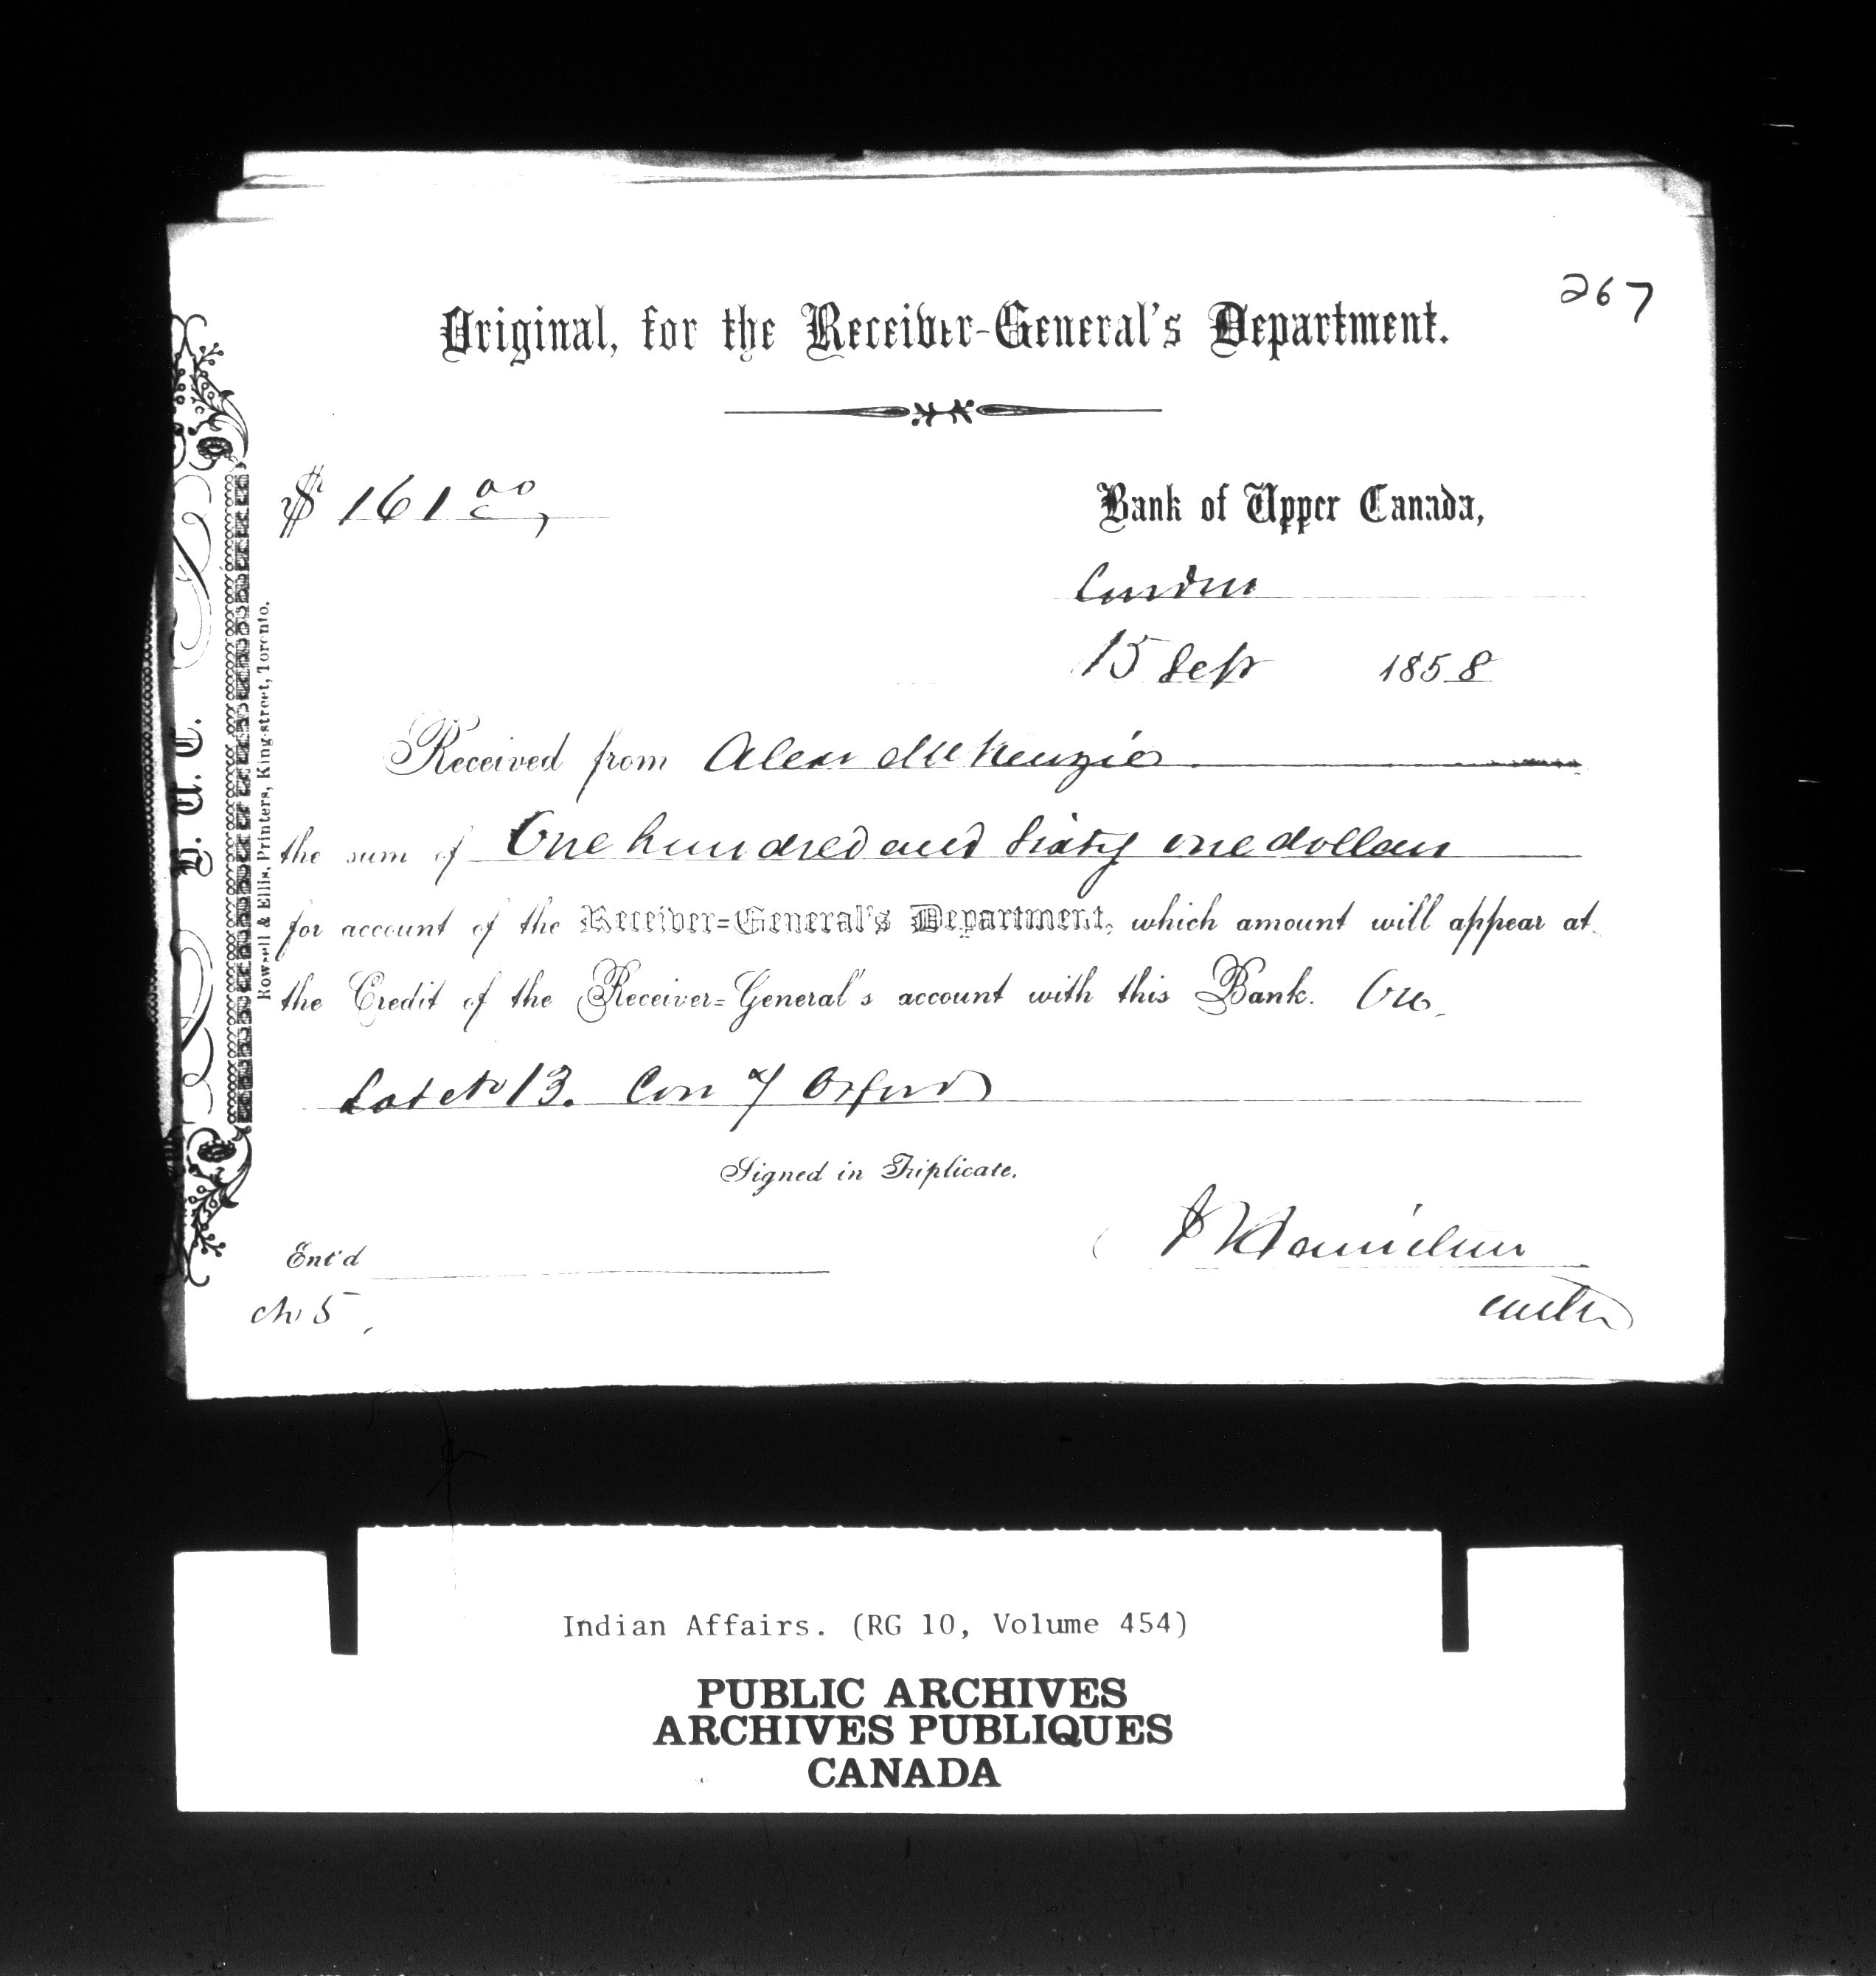 267
Original, for the Receiver-General's Department.
$ 161 00
Bank of Upper Canada,
London
15 Sept 1858
Received from Alexr McKenzie
the sum of One hundred and Sixty one dollars
for account of the Receiver=General's Department, which amount will appear at
the Credit of the Receiver=General's account with this Bank. On
Lot No 13. Con 7 Orford
Signed in Triplicate.
Ent'd
No 5
B. U. C.
Rowsell & Ellis, Printers, King-street, Toronto.
Indian Affairs. (RG 10, Volume 454)
PUBLIC ARCHIVES
ARCHIVES PUBLIQUES
CANADA